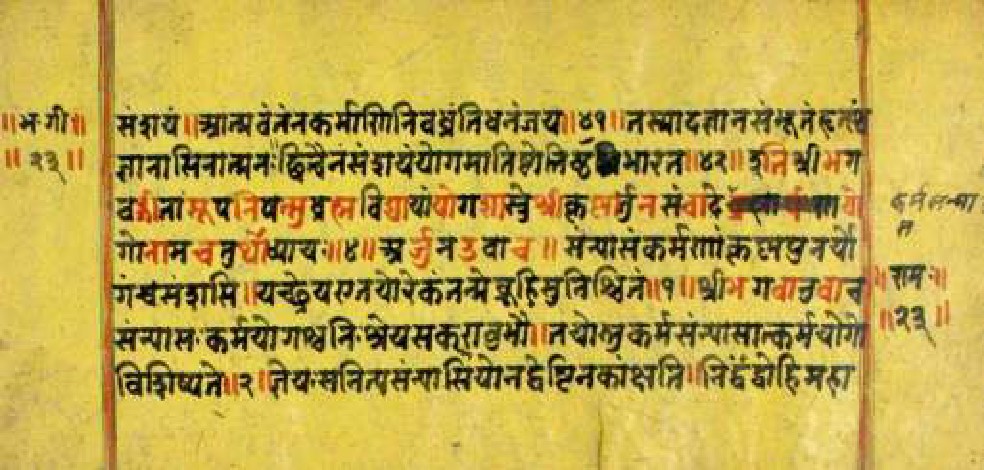 ॥भ गी॥
॥२३॥
संशयं॥आत्मवंतंनकर्माणिनिबध्नंतिधनंजय॥४१॥तस्मादज्ञानसंभूतंहृत्स्थं
ज्ञानासिनात्मनः॥छित्वैनंसंशयंयोगमातिष्ठोत्तिष्ठभारत॥४२॥इतिश्रीभग
वद्गीतासूपनिषत्सुब्रह्मविद्यायांयोगशास्त्रेश्रीकृष्णार्जुनसंवादे यो
गोनामचतुर्थोध्यायः॥४॥अर्जुनउवाच॥संन्यासंकर्मणांकृष्णपुनर्यो
गंचसंशसि॥यच्छ्रेयएतयोरेकंतन्मेब्रूहिसुनिश्चितं॥१॥श्रीभगवानुवाच
संन्यासःकर्मयोगश्चनिःश्रेयसकरावुभौ॥तयोस्तुकर्मसंन्यासात्कर्मयोगो
विशिष्यते॥२॥ज्ञेयःसनित्यसंन्यासियोनद्वेष्टिनकांक्षति॥निर्द्वंद्वोहिमहा
कर्मसन्या
स
॥रामः॥
॥२३॥